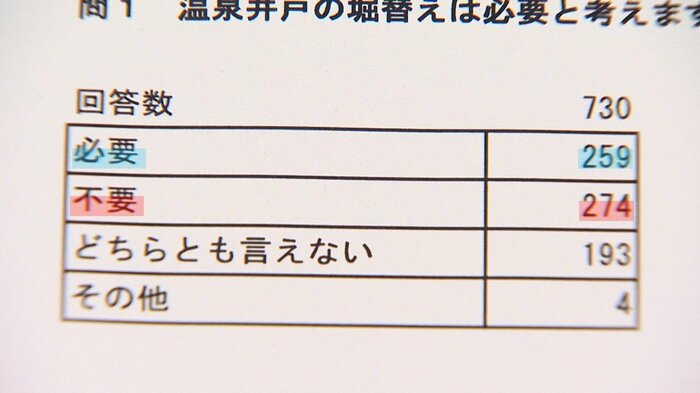 問1 温泉井戸の堀替えは必要と考えます
回答数 730
必要 259
不要 274
どちらとも言えない 193
その他 4